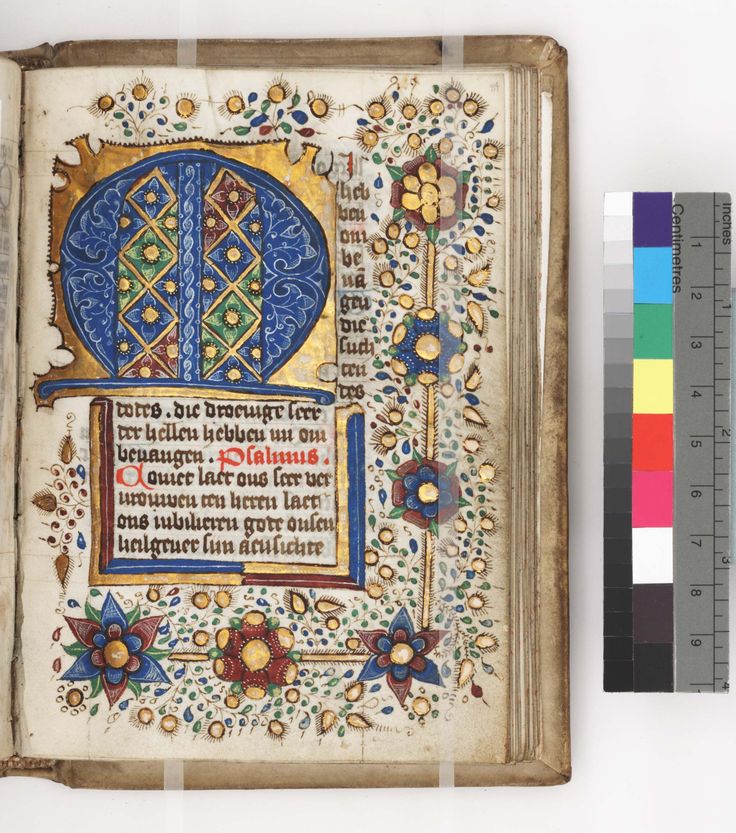 M I
heb
ben
om
be
uā
gen
die
such
ten
des
dodes . die droeuige seer
der hellen hebben mi om
beuangen . Psalmus .
Comet laet ons seer ver
urouwen den heren laet
ons iubilieren gode onsen
heilgeuer sijn aensichte
Centimetres
1
2
3
4
5
6
7
8
9
Inches
1
2
3
4